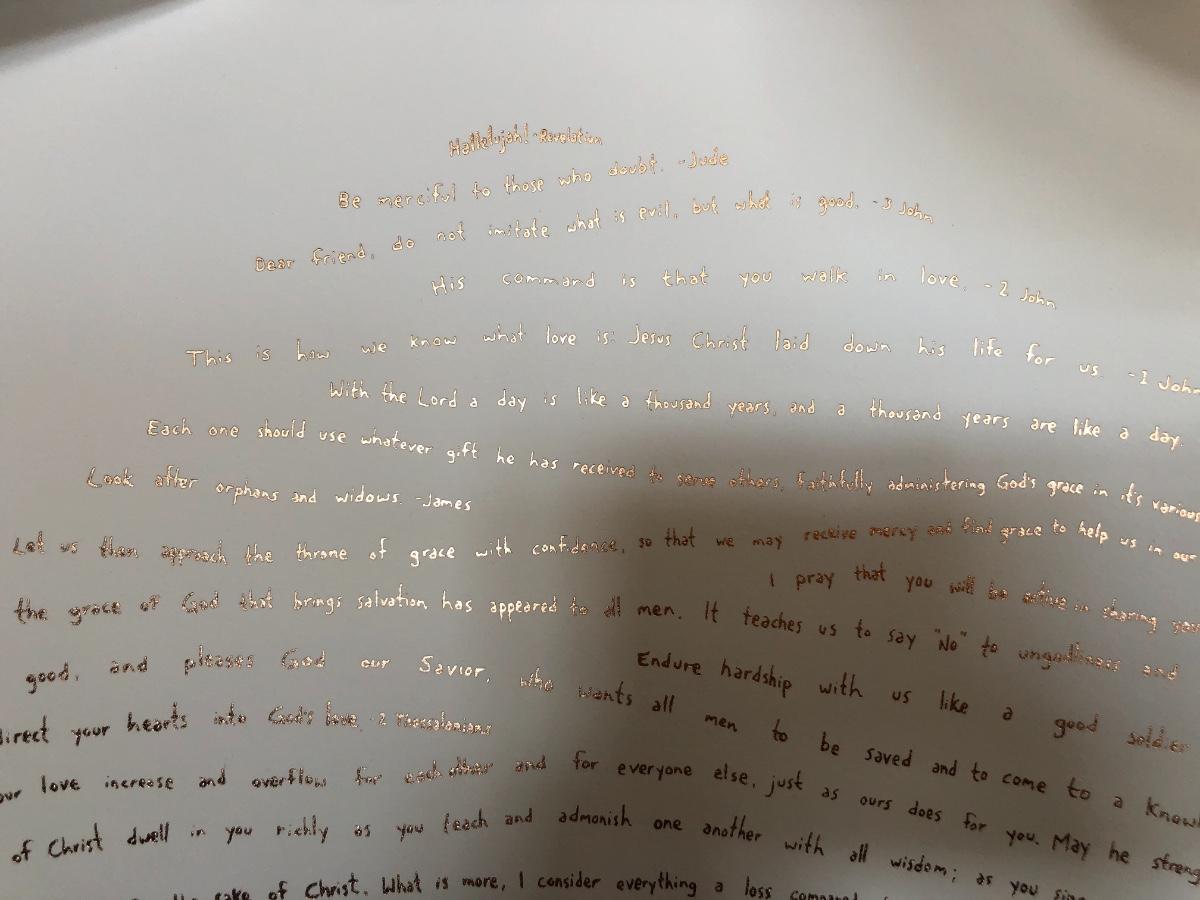 Hallelujah! -Revelation
Be merciful to those who doubt. -Jude
Dear friend, do not imitate what is evil, but what is good. -3 John
His command is that you walk in love. -2 John
This is how we know what love is: Jesus Christ laid down his life for us. -1 John
With the Lord a day is like a thousand years, and a thousand years are like a day.
Each one should use whatever gift he has received to serve others, faithfully administering God's grace in it's various
Look after orphans and widows. -James
Let us then approach the throne of grace with confidence, so that we may receive mercy and find grace to help us in our
I pray that you will be active in sharing your
the grace of God that brings salvation has appeared to all men. It teaches us to say "No" to ungodliness and
Endure hardship with us like a good soldier
good, and pleases God our Savior, who wants all men to be saved and to come to a
direct your hearts into God's love. -2 Thessalonians
love increase and overflow for each other and for everyone else, just as ours does for you. May he
of Christ dwell in you richly as you teach and admonish one another with all wisdom; as you
sake of Christ. What is more, I consider everything a loss